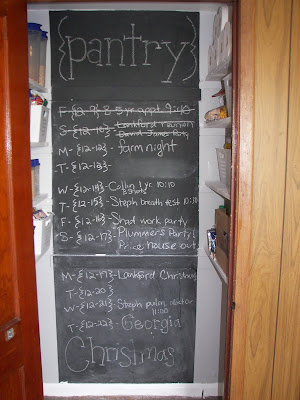 {pantry}
F-{12-9} 8 5 yr appt. 9:40
S-{12-10} Lankford reunion
David James Party
M-{12-12} farm night
T-{12-13}-
W-{12-14} Collin 1 yr. 10:10
T-{12-15} Steph breath test 10:30
F-{12-16} Shad work party
S-{12-17} Plummers Party!
Price house out
M-{12-19}-Lankford Christmas
T-{12-20}
W-{12-21}-Steph pulm. doctor
11:00
T-{12-22}-Georgia
Christmas